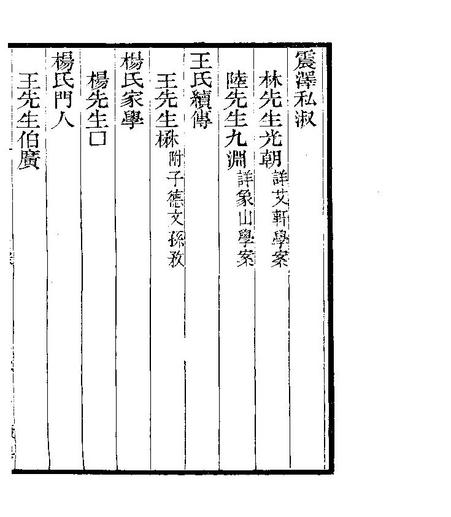 震澤私淑
林先生光朝 詳艾軒學案
陸先生九淵 詳象山學案
王氏續傳
王先生 附子德文孫
楊氏家學
楊先生□
楊氏門人
王先生伯廣